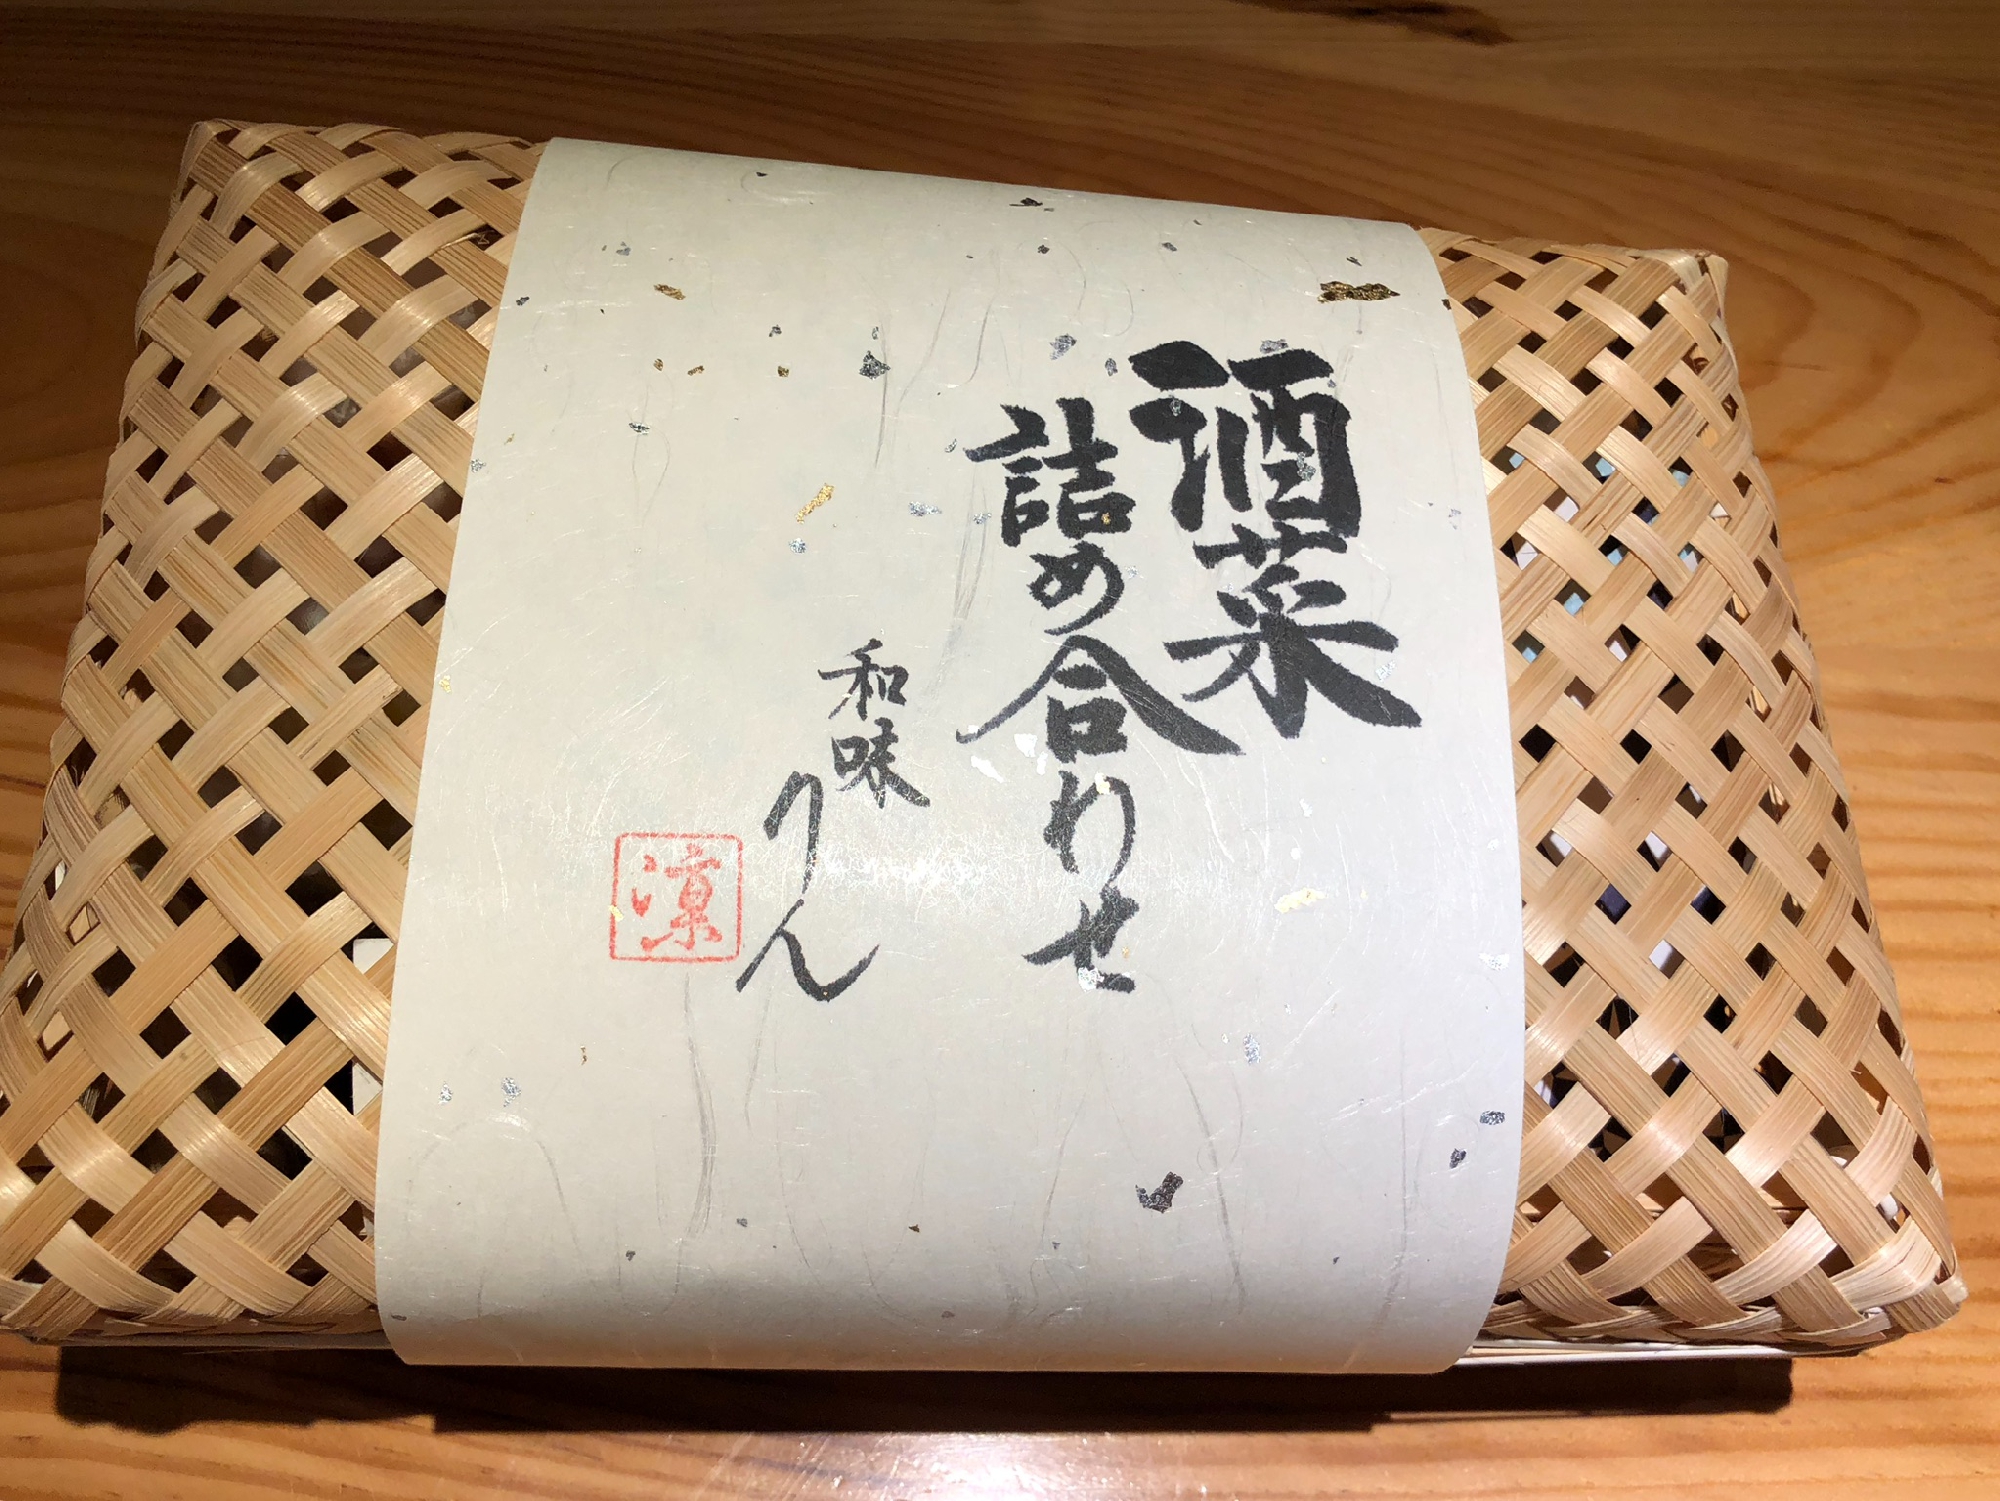 酒菜
詰め合わせ
和味
りん
涼